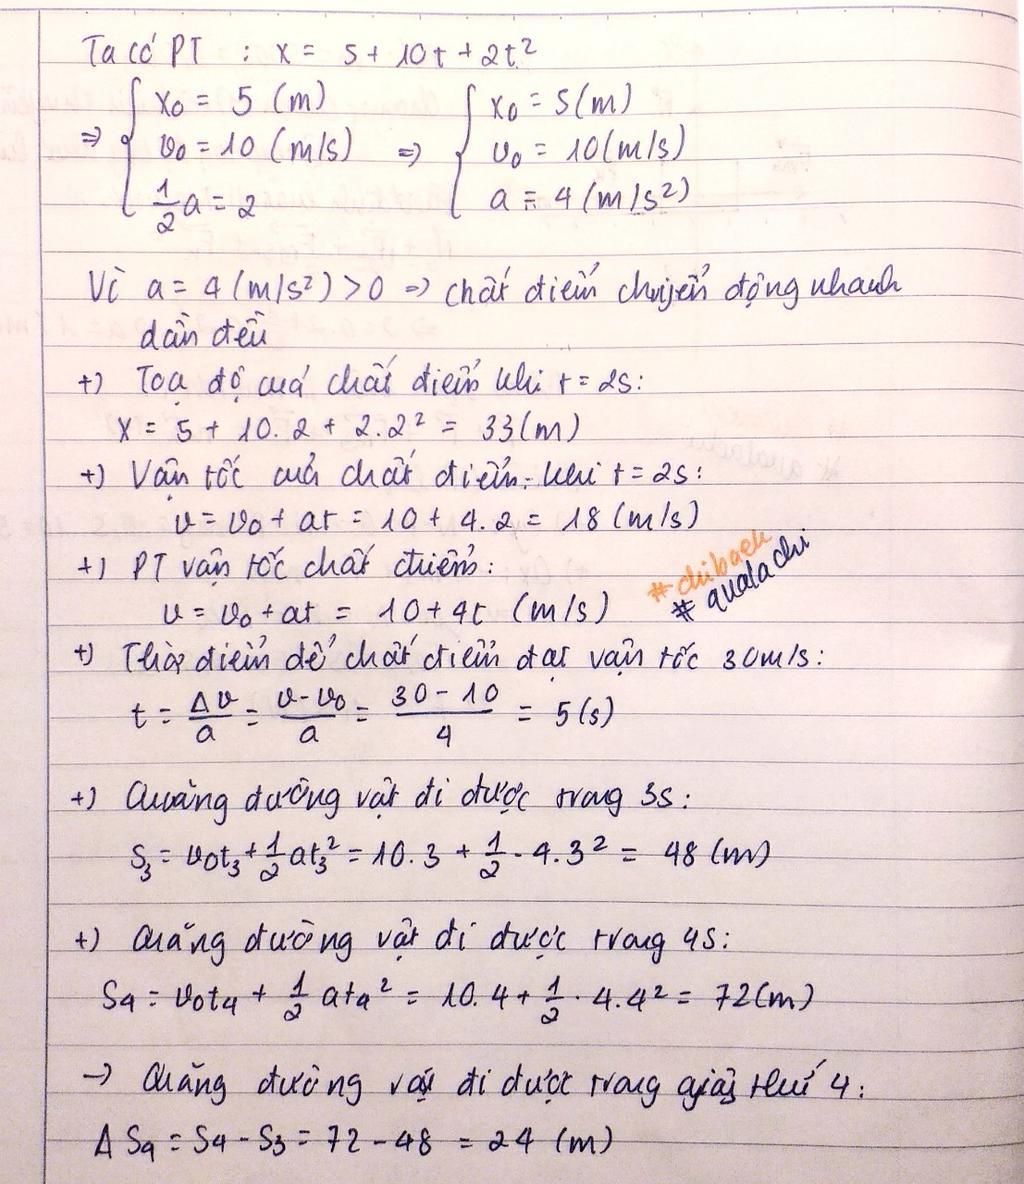 Ta có PT : x = 5 + 10t + 2t²
⇒ { x₀ = 5 (m) ⇒ { x₀ = 5 (m)
v₀ = 10 (m/s) v₀ = 10 (m/s)
1/2 a = 2 a = 4 (m/s²)
Vì a = 4 (m/s²) > 0 ⇒ chất điểm chuyển động nhanh
dần đều
+) Toạ độ của chất điểm khi t = 2s:
x = 5 + 10.2 + 2.2² = 33 (m)
+) Vận tốc của chất điểm khi t = 2s:
v = v₀ + at = 10 + 4.2 = 18 (m/s)
+) PT vận tốc chất điểm:
#chibaek
v = v₀ + at = 10 + 4t (m/s)
#qualachi
+) Thời điểm để chất điểm đạt vận tốc 30m/s:
t = Δv/a = v - v₀/a = 30 - 10/4 = 5 (s)
+) Quãng đường vật đi được trong 3s:
S₃ = v₀t₃ + 1/2 at₃² = 10.3 + 1/2 . 4.3² = 48 (m)
+) Quãng đường vật đi được trong 4s:
S₄ = v₀t₄ + 1/2 at₄² = 10.4 + 1/2 . 4.4² = 72 (m)
→ Quãng đường vật đi được trong giây thứ 4:
ΔS₄ = S₄ - S₃ = 72 - 48 = 24 (m)